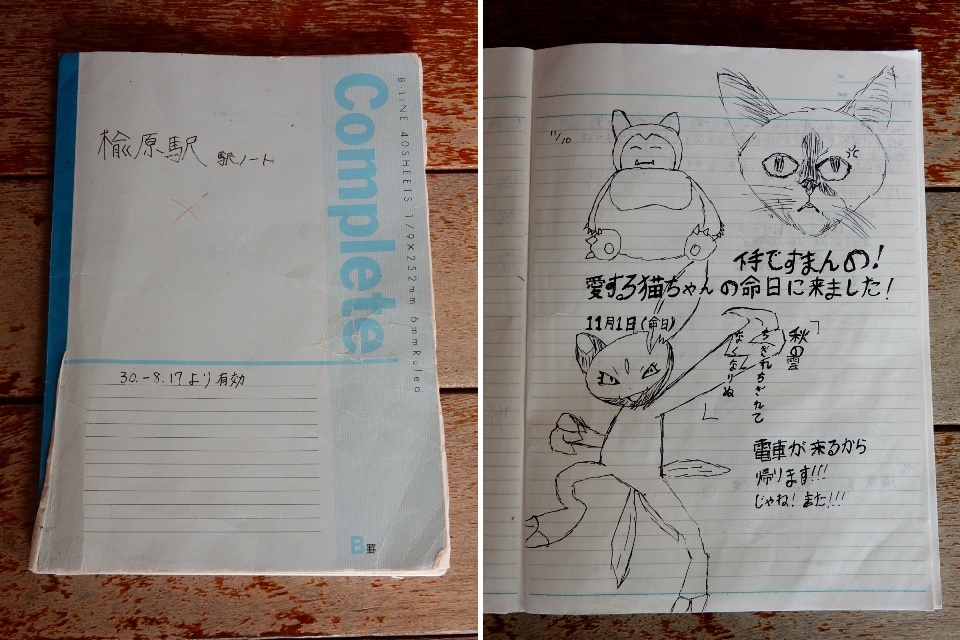 楡原駅 駅ノート
Complete
B-LINE 40SHEETS 179×252mm 6mmRuled
30.-8.17より有効
B罫
11/10
下手ですまんの!
愛する猫ちゃんの命日に来ました!
11月1日(命日)
「秋の雲
ちぎれちぎれて
なくなりぬ」
電車が来るから
帰ります!!!
じゃね!また!!!